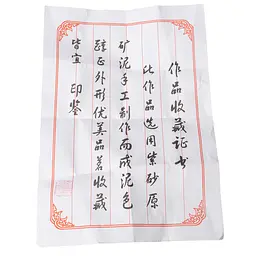 作品收藏证书
此作品选用紫砂原
矿泥手工制作而成泥色
醇正外形优美品茗收藏
皆宜
印鉴